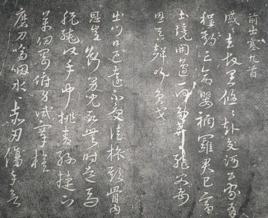 前出塞九首
戚戚去故里悠悠赴交河公家有
程期亡命嬰禍羅君已富
土境開邊一何多棄絕父母
恩吞聲行負戈
出門日已遠不受徒旅欺骨肉
恩豈斷男兒死無時走馬
脫轡頭手中挑青絲捷下
萬仞岡俯身試搴旗
磨刀嗚咽水水赤刃傷手